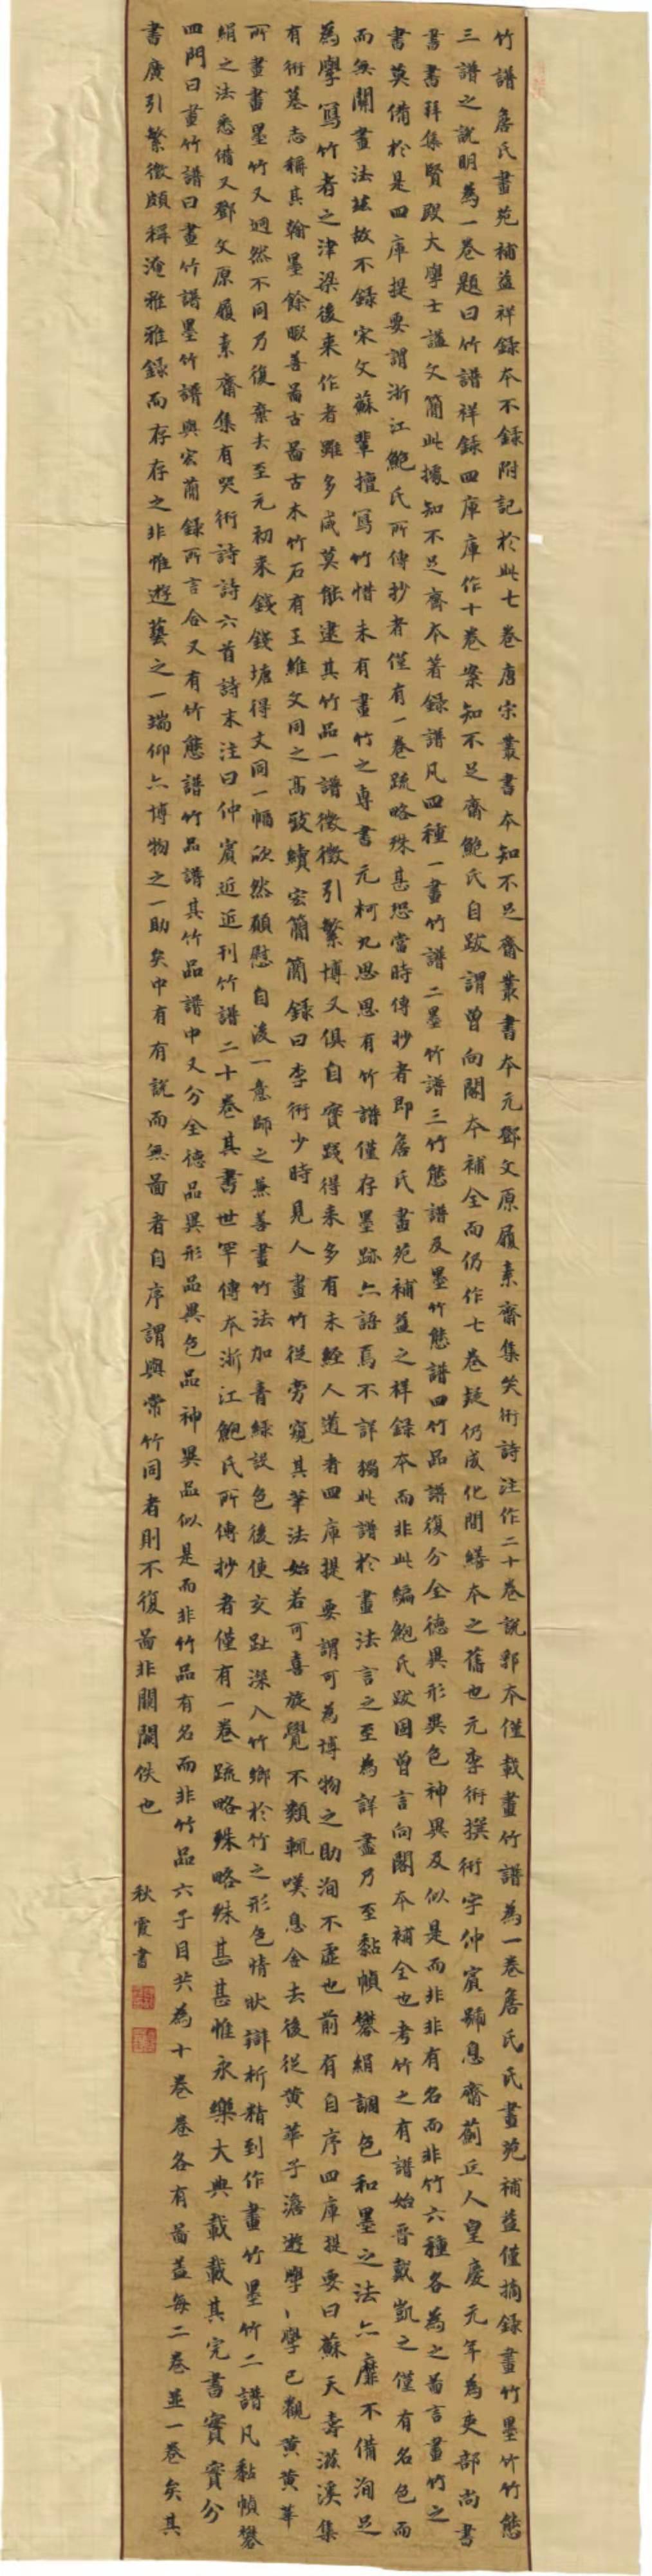 竹譜詹氏畫苑補益祥錄本不錄附記於此七卷唐宋叢書本知不足齋叢書本元鄧文原履素齋集失衎詩注作二十卷說郛本僅載畫竹譜為一卷詹氏氏畫苑補益僅摘錄畫竹墨竹竹態
三譜之說明為一卷題曰竹譜祥錄四庫庫作十卷案知不足齋鮑氏自跋謂曾向閣本補全而仍作七卷疑仍成化間繕本之舊也元李衎撰衎字仲賓號息齋薊丘人皇慶元年為吏部尚書
書書拜集賢殿大學士謚文簡此據知不足齋本著錄譜凡四種一畫竹譜二墨竹譜三竹態譜及墨竹態譜四竹品譜復分全德異形異色神異及似是而非非有名而非竹六種各為之啚言畫竹之
書莫備於是四庫提要謂浙江鮑氏所傳抄者僅有一卷疏略殊甚恐當時傳抄者即詹氏畫苑補益之祥錄本而非此編鮑氏跋固曾言向閣本補全也考竹之有譜始晉戴凱之僅有名色而
而無關畫法故不錄宋文蘇輩擅寫竹惜未有畫竹之專書元柯九思思有竹譜僅存墨跡亦語焉不詳獨此譜於畫法言之至為詳盡乃至黏幀礬絹調色和墨之法亦靡不備洵足
為學寫竹者之津梁後來作者雖多咸莫能逮其竹品一譜徵徵引繁博又俱自實踐得來多有未經人道者四庫提要謂可為博物之助洵不虛也前有自序四庫提要曰蘇天壽滋溪集
有衎墓志稱其翰墨餘暇善啚古啚古木竹石有王維文同之高致續宏簡簡錄曰李衎少時見人畫竹從旁窺其筆法始若可喜旋覺不類輒嘆息舍去後從黃華子澹遊學、學已觀黃黃華
所畫畫墨竹又迥然不同乃復棄去至元初來錢錢塘得文同一幅欣然願慰自後一意師之兼善畫竹法加青綠設色後使交趾深入竹鄉於竹之形色情狀辯析精到作畫竹墨竹二譜凡黏幀礬
絹之法悉備又鄧文原履素齋集有哭衎詩詩六首詩末注曰仲賓近近刊竹譜二十卷其書世罕傳本浙江鮑氏所傳抄者僅有一卷疏略殊略殊甚甚惟永樂大典載載其完書實實分
四門曰畫竹譜曰畫竹譜墨竹譜與宏簡錄所言合又有竹態譜竹品譜其竹品譜中又分全德品異形品異色品神異品似是而非竹品有名而非竹品六子目共為十卷卷各有啚益每二卷並一卷矣其
書廣引繁徵頗稱淹雅雅錄而存存之非惟遊藝之一端仰亦博物之一助矣中有有說而無啚者自序謂與常竹同者則不復啚非關闕佚也
秋霞書